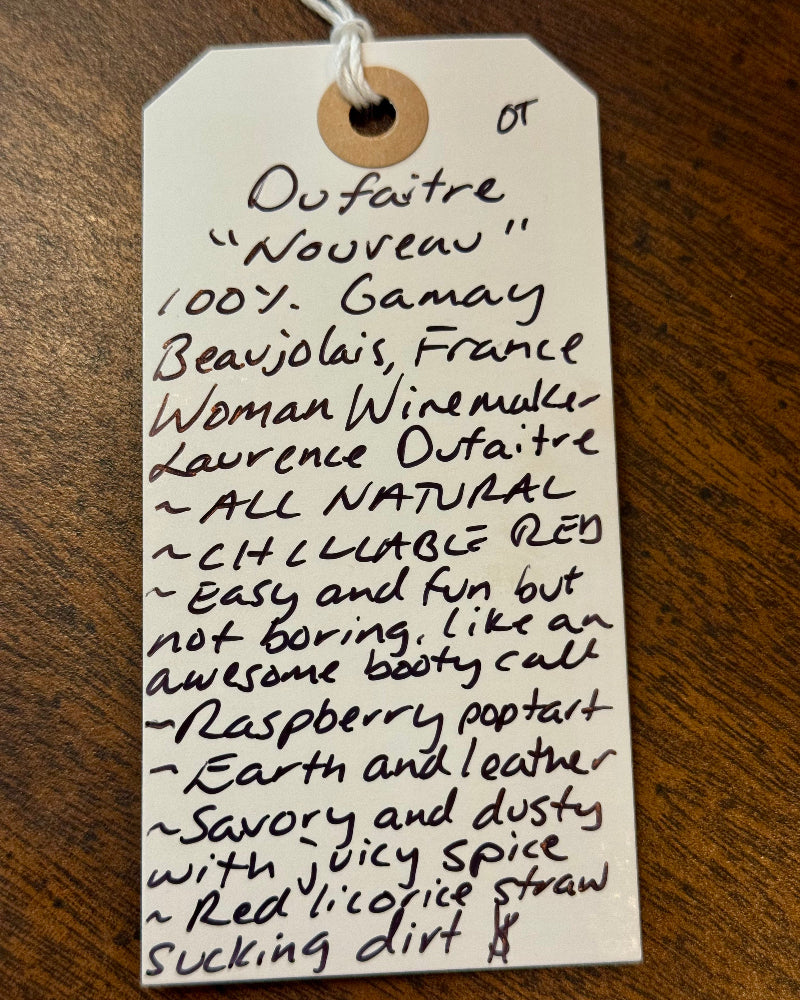 OT
Dufaitre
"Nouveau"
100%. Gamay
Beaujolais, France
Woman Winemaker
Laurence Dufaitre
~ ALL NATURAL
~ CHILLABLE RED
~ Easy and fun but
not boring. like an
awesome booty call
~ Raspberry poptart
~ Earth and leather
~ Savory and dusty
with juicy spice
~ Red licorice straw
sucking dirt $